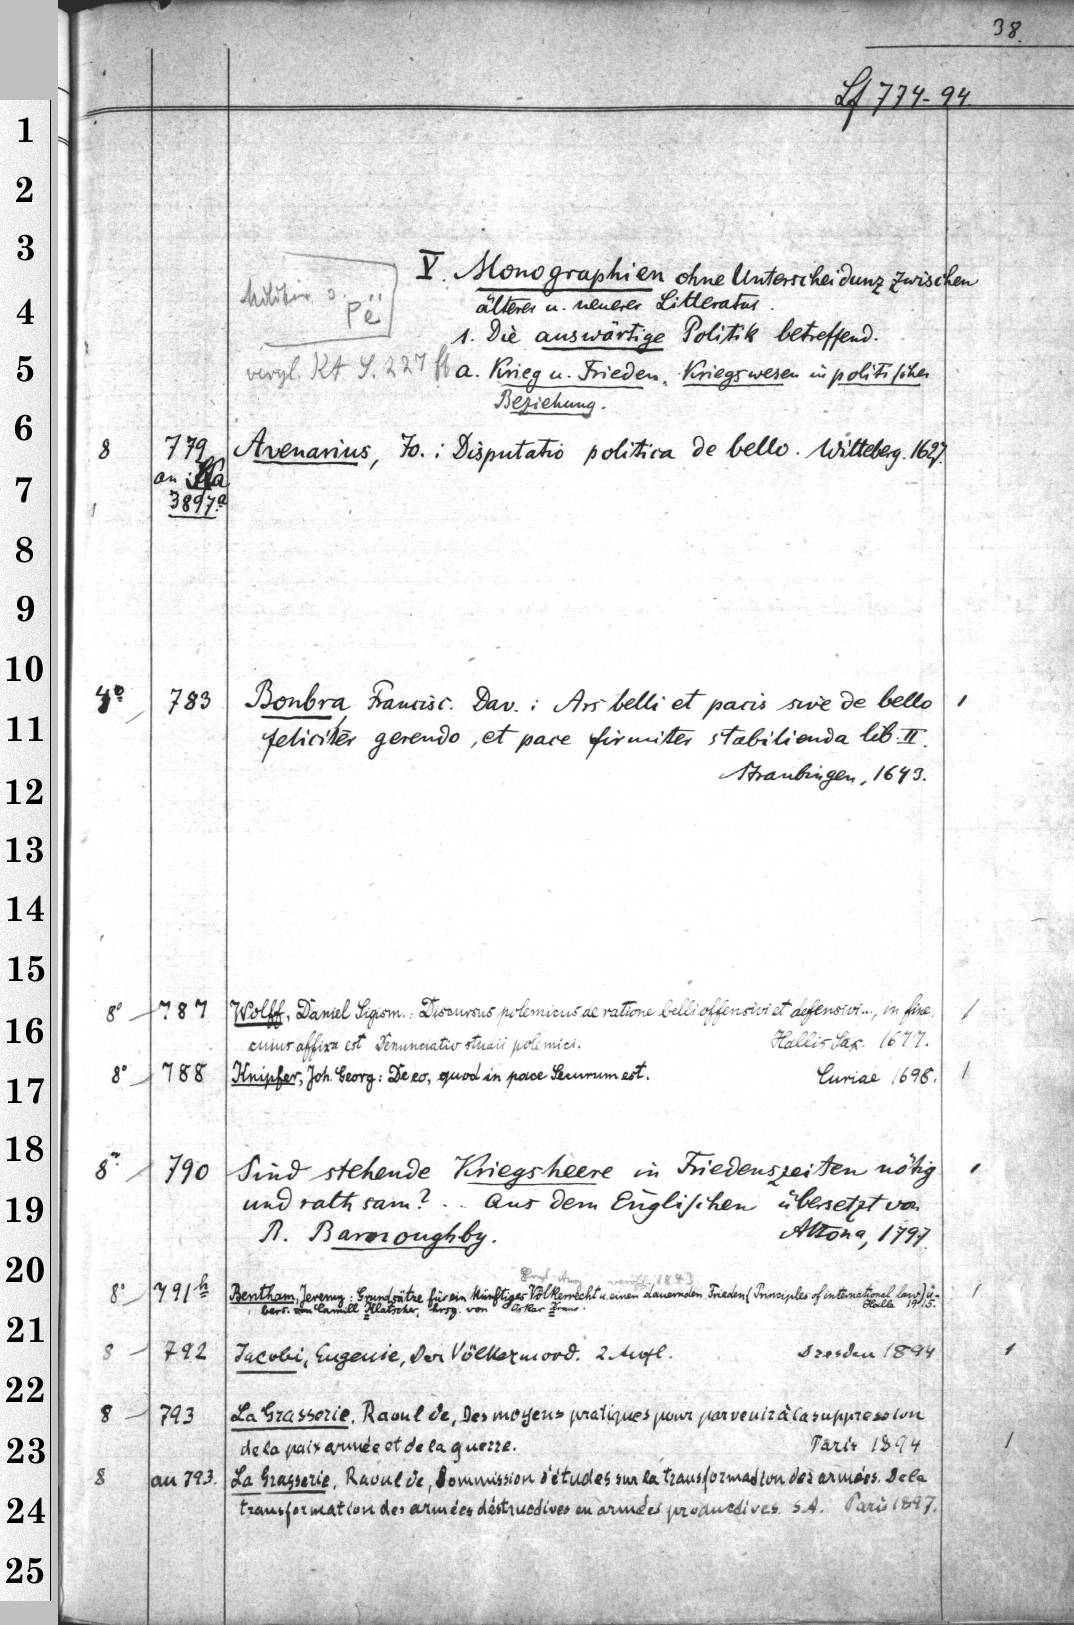 38.
Lf 774-94
V. Monographien ohne Unterscheidung zwischen
älterer u. neuerer Litteratur.
Militär s.
Pë
1. Die auswärtige Politik betreffend.
vergl. Kt S. 227 ff a. Krieg u. Frieden. Kriegswesen in politischer
Beziehung.
8 779 Avenarius, Jo.: Disputatio politica de bello. Witteberg. 1627.
an: Ka
3897.a
4° 783 Bonbra, Francisc. Dav.: Ars belli et pacis sive de bello 1
feliciter gerendo, et pace firmiter stabilienda lib. II.
Straubingen, 1643.
8° 787 Wolff, Daniel Sigism.: Discursus polemicus de ratione belli offensivi et defensivi..., in fine, 1
cuius affixa est Denunciatio studii polemici. Hallis Sax. 1677.
8° 788 Knipfer, Joh. Georg: De eo, quod in pace Securum est. Curiae 1698. 1
8° 790 Sind stehende Kriegsheere in Friedenszeiten nötig 1
und rathsam? .. Aus dem Englischen übersetzt von
R. Bamroughby. Altona, 1797.
veröff. 1843
8° 791h Bentham, Jeremy: Grundsätze für ein künftiges Völkerrecht u. einen dauernden Frieden (Principles of international law) ü- 1
bers. von Camill Klatscher, hrsg. von Oskar Kraus. Halle 1915.
8 792 Jacobi, Eugenie, Der Völkermord. 2 Aufl. Dresden 1894 1
8 793 La Grasserie, Raoul de, Des moyens pratiques pour parvenir à la suppression
de la paix armée et de la guerre. Paris 1894 1
8 an 793. La Grasserie, Raoul de, Commission d'études sur la transformation des armées. De la
transformation des armées destructives en armées productives. S.A. Paris 1897.
1
2
3
4
5
6
7
8
9
10
11
12
13
14
15
16
17
18
19
20
21
22
23
24
25